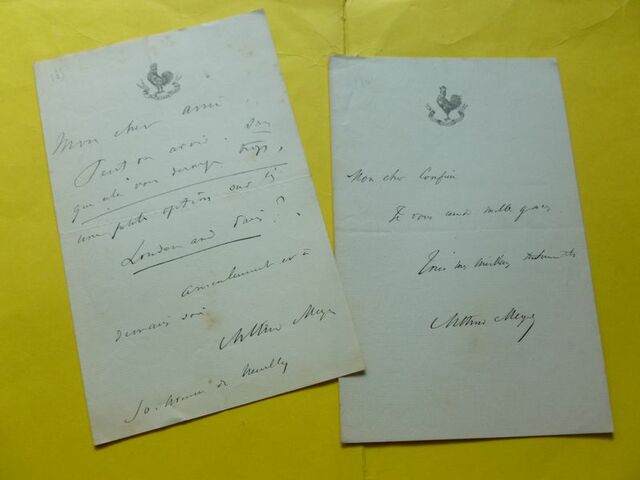 Mon cher ami
Peut on avoir, sans
que cela vous dérange trop,
une petite option sur le
London and Paris?
amicalement et à
demain soir
Arthur Meyer
Avenue de Neuilly
Mon cher Confrère
Je vous rends mille grâces
Tous mes meilleurs sentiments
Arthur Meyer